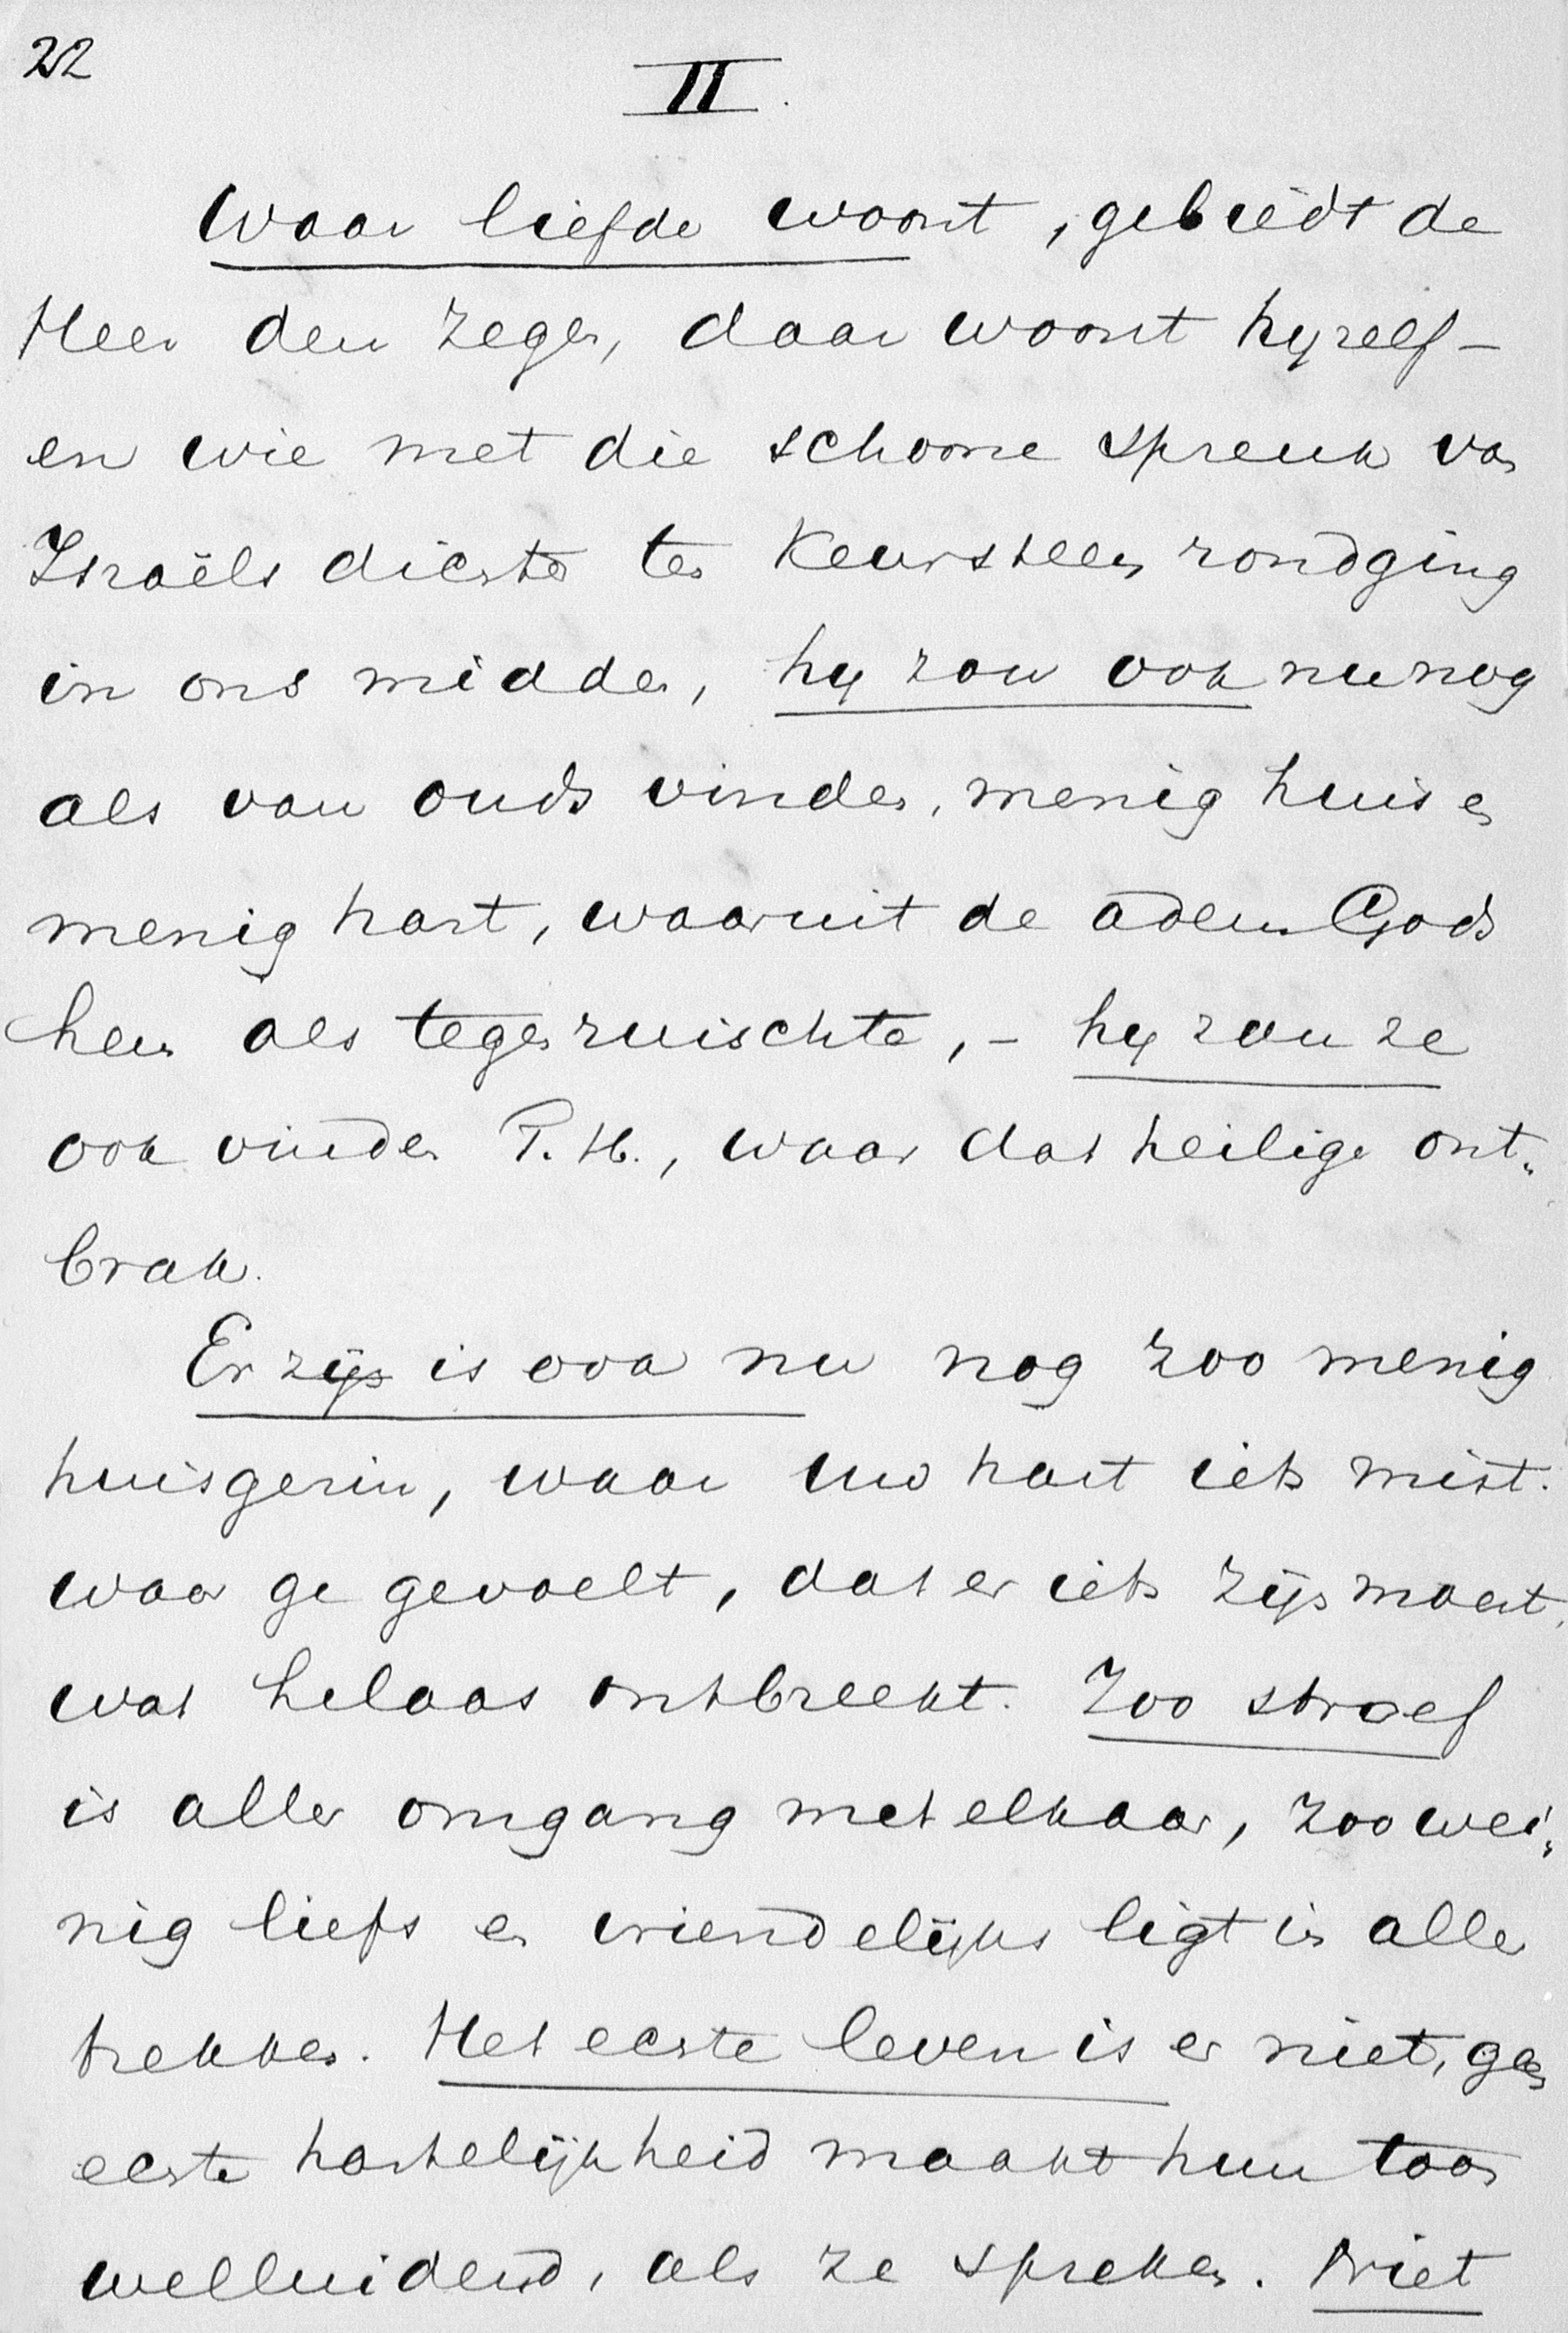 22
II.
Waar liefde woont, gebiedt de
Heer den zegen, daar woont hijzelf –
en wie met die schoone spreuk van
Israëls dichter ten keursteen rondging
in ons midden, hij zou ook nu nog
als van ouds vinden, menig huis en
menig hart, waaruit de adem Gods
hem als tegenruischte, – hij zou ze
ook vinden T. H., waar dat heilige ont„
brak.
Er zijn is ook nu nog zoo menig
huisgezin, waar uw hart iets mist.
waar ge gevoelt, dat er iets zijn moest,
wat helaas ontbreekt. Zoo stroef
is aller omgang met elkaar, zoo wei„
nig liefs en vriendelijks ligt in aller
trekken. Het echte leven is er niet, geen
echte hartelijkheid maakt hun toon
welluidend, als ze spreken. Niet